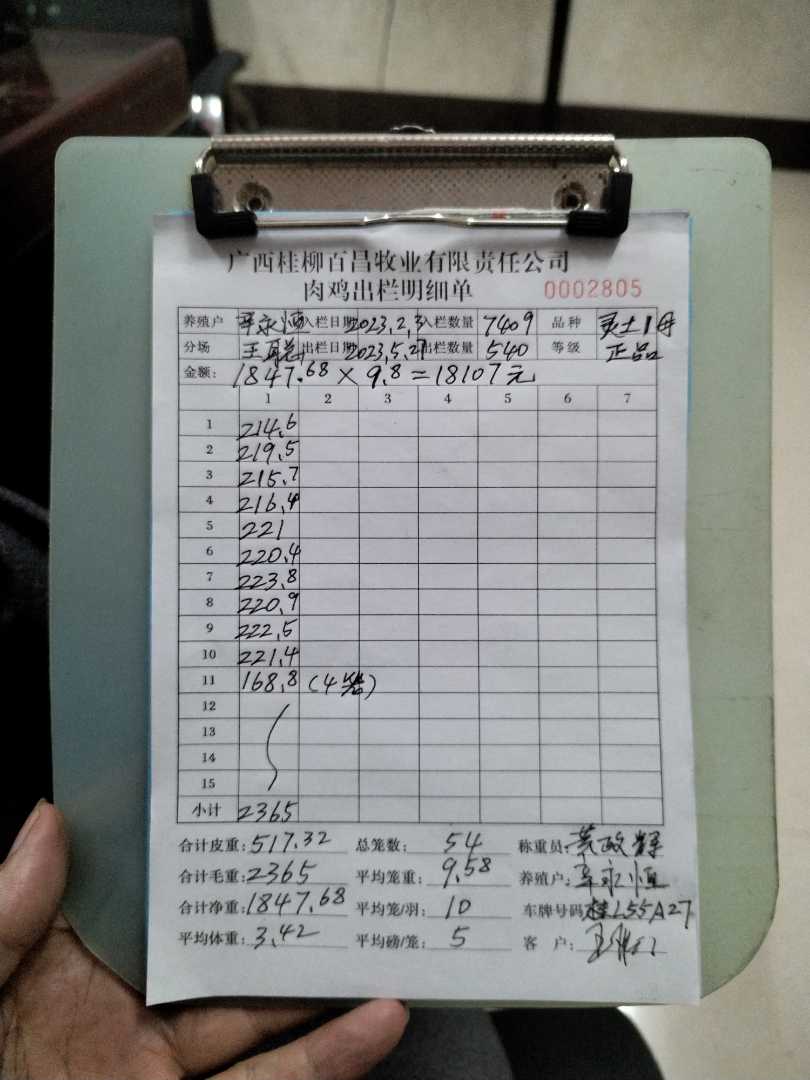 广西桂柳百昌牧业有限责任公司
肉鸡出栏明细单 0002805
养殖户 永恒 入栏日期 2023,2,3 入栏数量 7409 品种 灵土1号
分场 出栏日期 2023,5,27 出栏数量 540 等级 正品
金额: 1847.68 × 9.8 = 18107元
1 2 3 4 5 6 7
1 214.6
2 219.5
3 215.7
4 216.4
5 221
6 220.4
7 223.8
8 220.9
9 222.5
10 221.4
11 168.8 (4笼)
12
13
14
15
小计 2365
合计皮重: 517.32 总笼数: 54 称重员: 黄政辉
合计毛重: 2365 平均笼重: 9.58 养殖户: 永恒
合计净重: 1847.68 平均笼/羽: 10 车牌号码 桂L55A27
平均体重: 3.42 平均磅/笼: 5 客户: